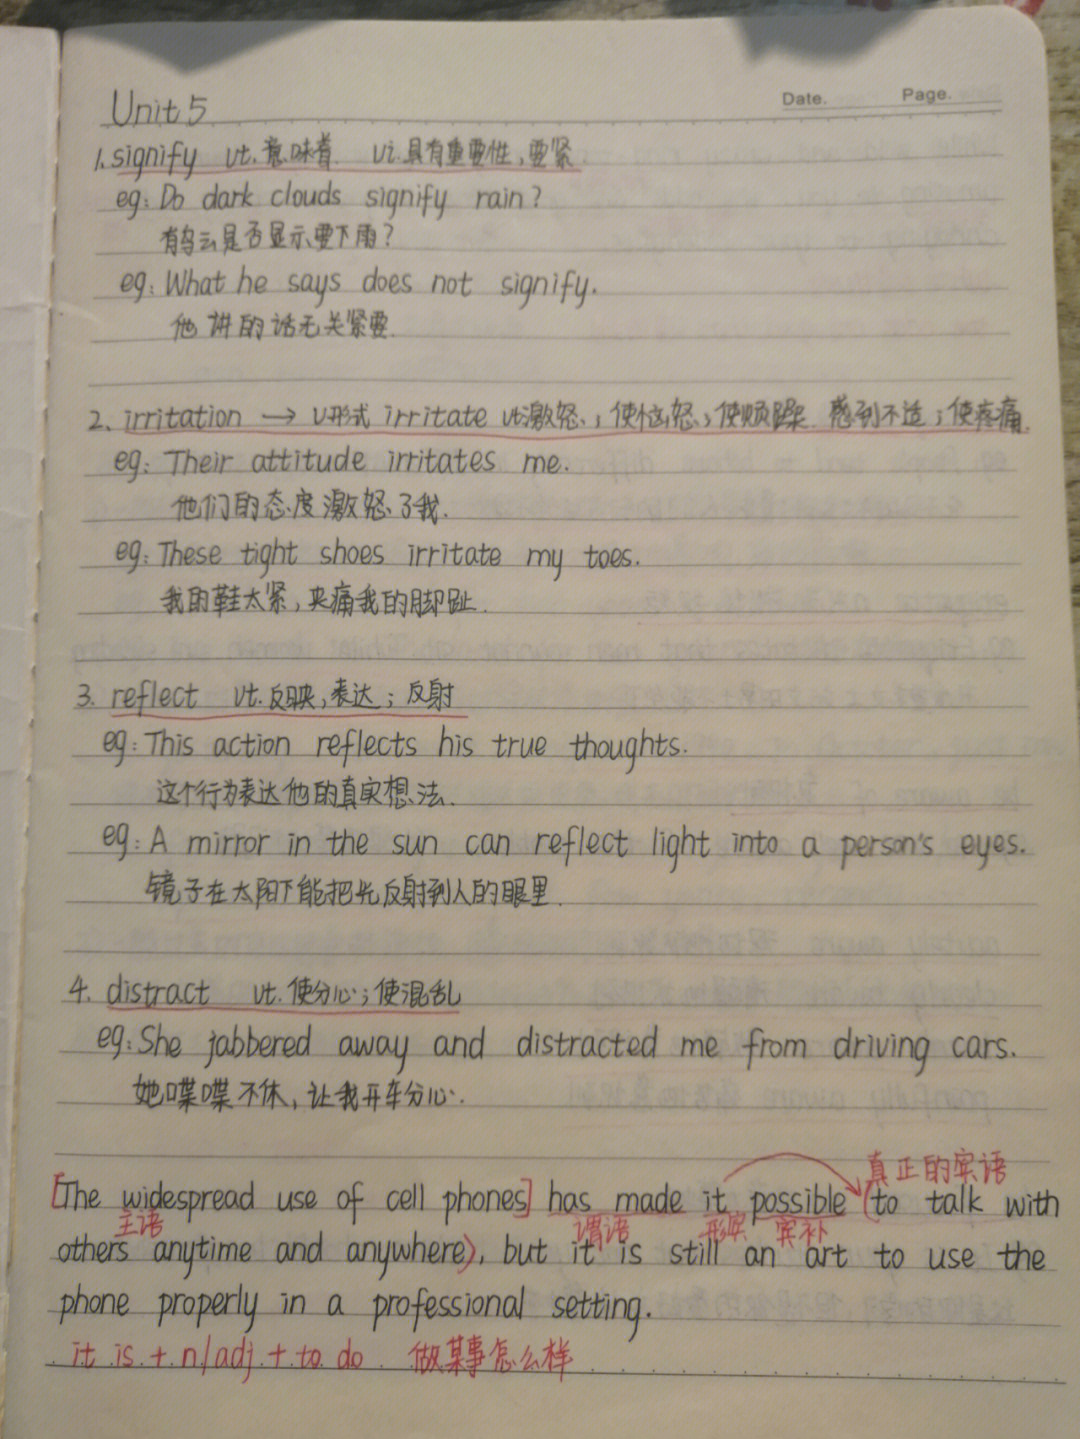 Date. Page.
Unit 5
1. signify vt. 意味着 vi. 具有重要性,要紧
eg: Do dark clouds signify rain?
有乌云是否显示要下雨?
eg: What he says does not signify.
他讲的话无关紧要.
2. irritation → v形式 irritate vt.激怒;使恼怒;使烦躁 感到不适;使疼痛
eg: Their attitude irritates me.
他们的态度激怒了我.
eg: These tight shoes irritate my toes.
我的鞋太紧,夹痛我的脚趾.
3. reflect vt.反映,表达;反射
eg: This action reflects his true thoughts.
这个行为表达他的真实想法.
eg: A mirror in the sun can reflect light into a person's eyes.
镜子在太阳下能把光反射到人的眼里.
4. distract vt. 使分心;使混乱
eg: She jabbered away and distracted me from driving cars.
她喋喋不休,让我开车分心.
真正的宾语
[The widespread use of cell phones] has made it possible (to talk with
主语 谓语 形宾 宾补
others anytime and anywhere), but it is still an art to use the
phone properly in a professional setting.
it is + n/adj + to do 做某事怎么样